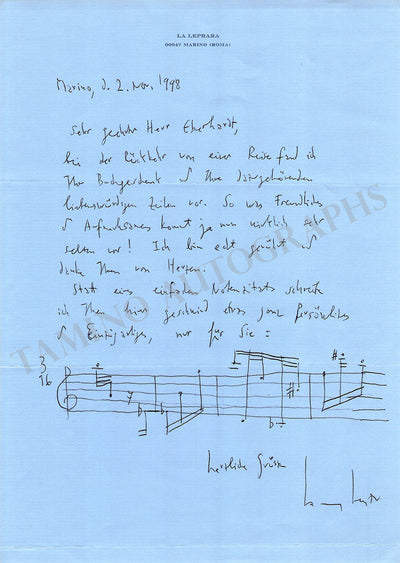 LA LEPRARA
00047 MARINO (ROMA)
Marino, d. 2. Nov. 1998
Sehr geehrter Herr Eberhardt,
bei der Rückkehr von einer Reise fand ich
Ihr Buchgeschenk & Ihre dazugehörenden
liebenswürdigen Zeilen vor. So was Freundliches
& Aufmerksames kommt ja nun wirklich sehr
selten vor! Ich bin echt gerührt &
danke Ihnen von Herzen.
Statt eines einfachen Notenzitats schreibe
ich Ihnen hier geschwind etwas ganz Persönliches
& Einzigartiges, nur für Sie:
3
16
herzliche Grüsse
TAMINO AUTOGRAPHS